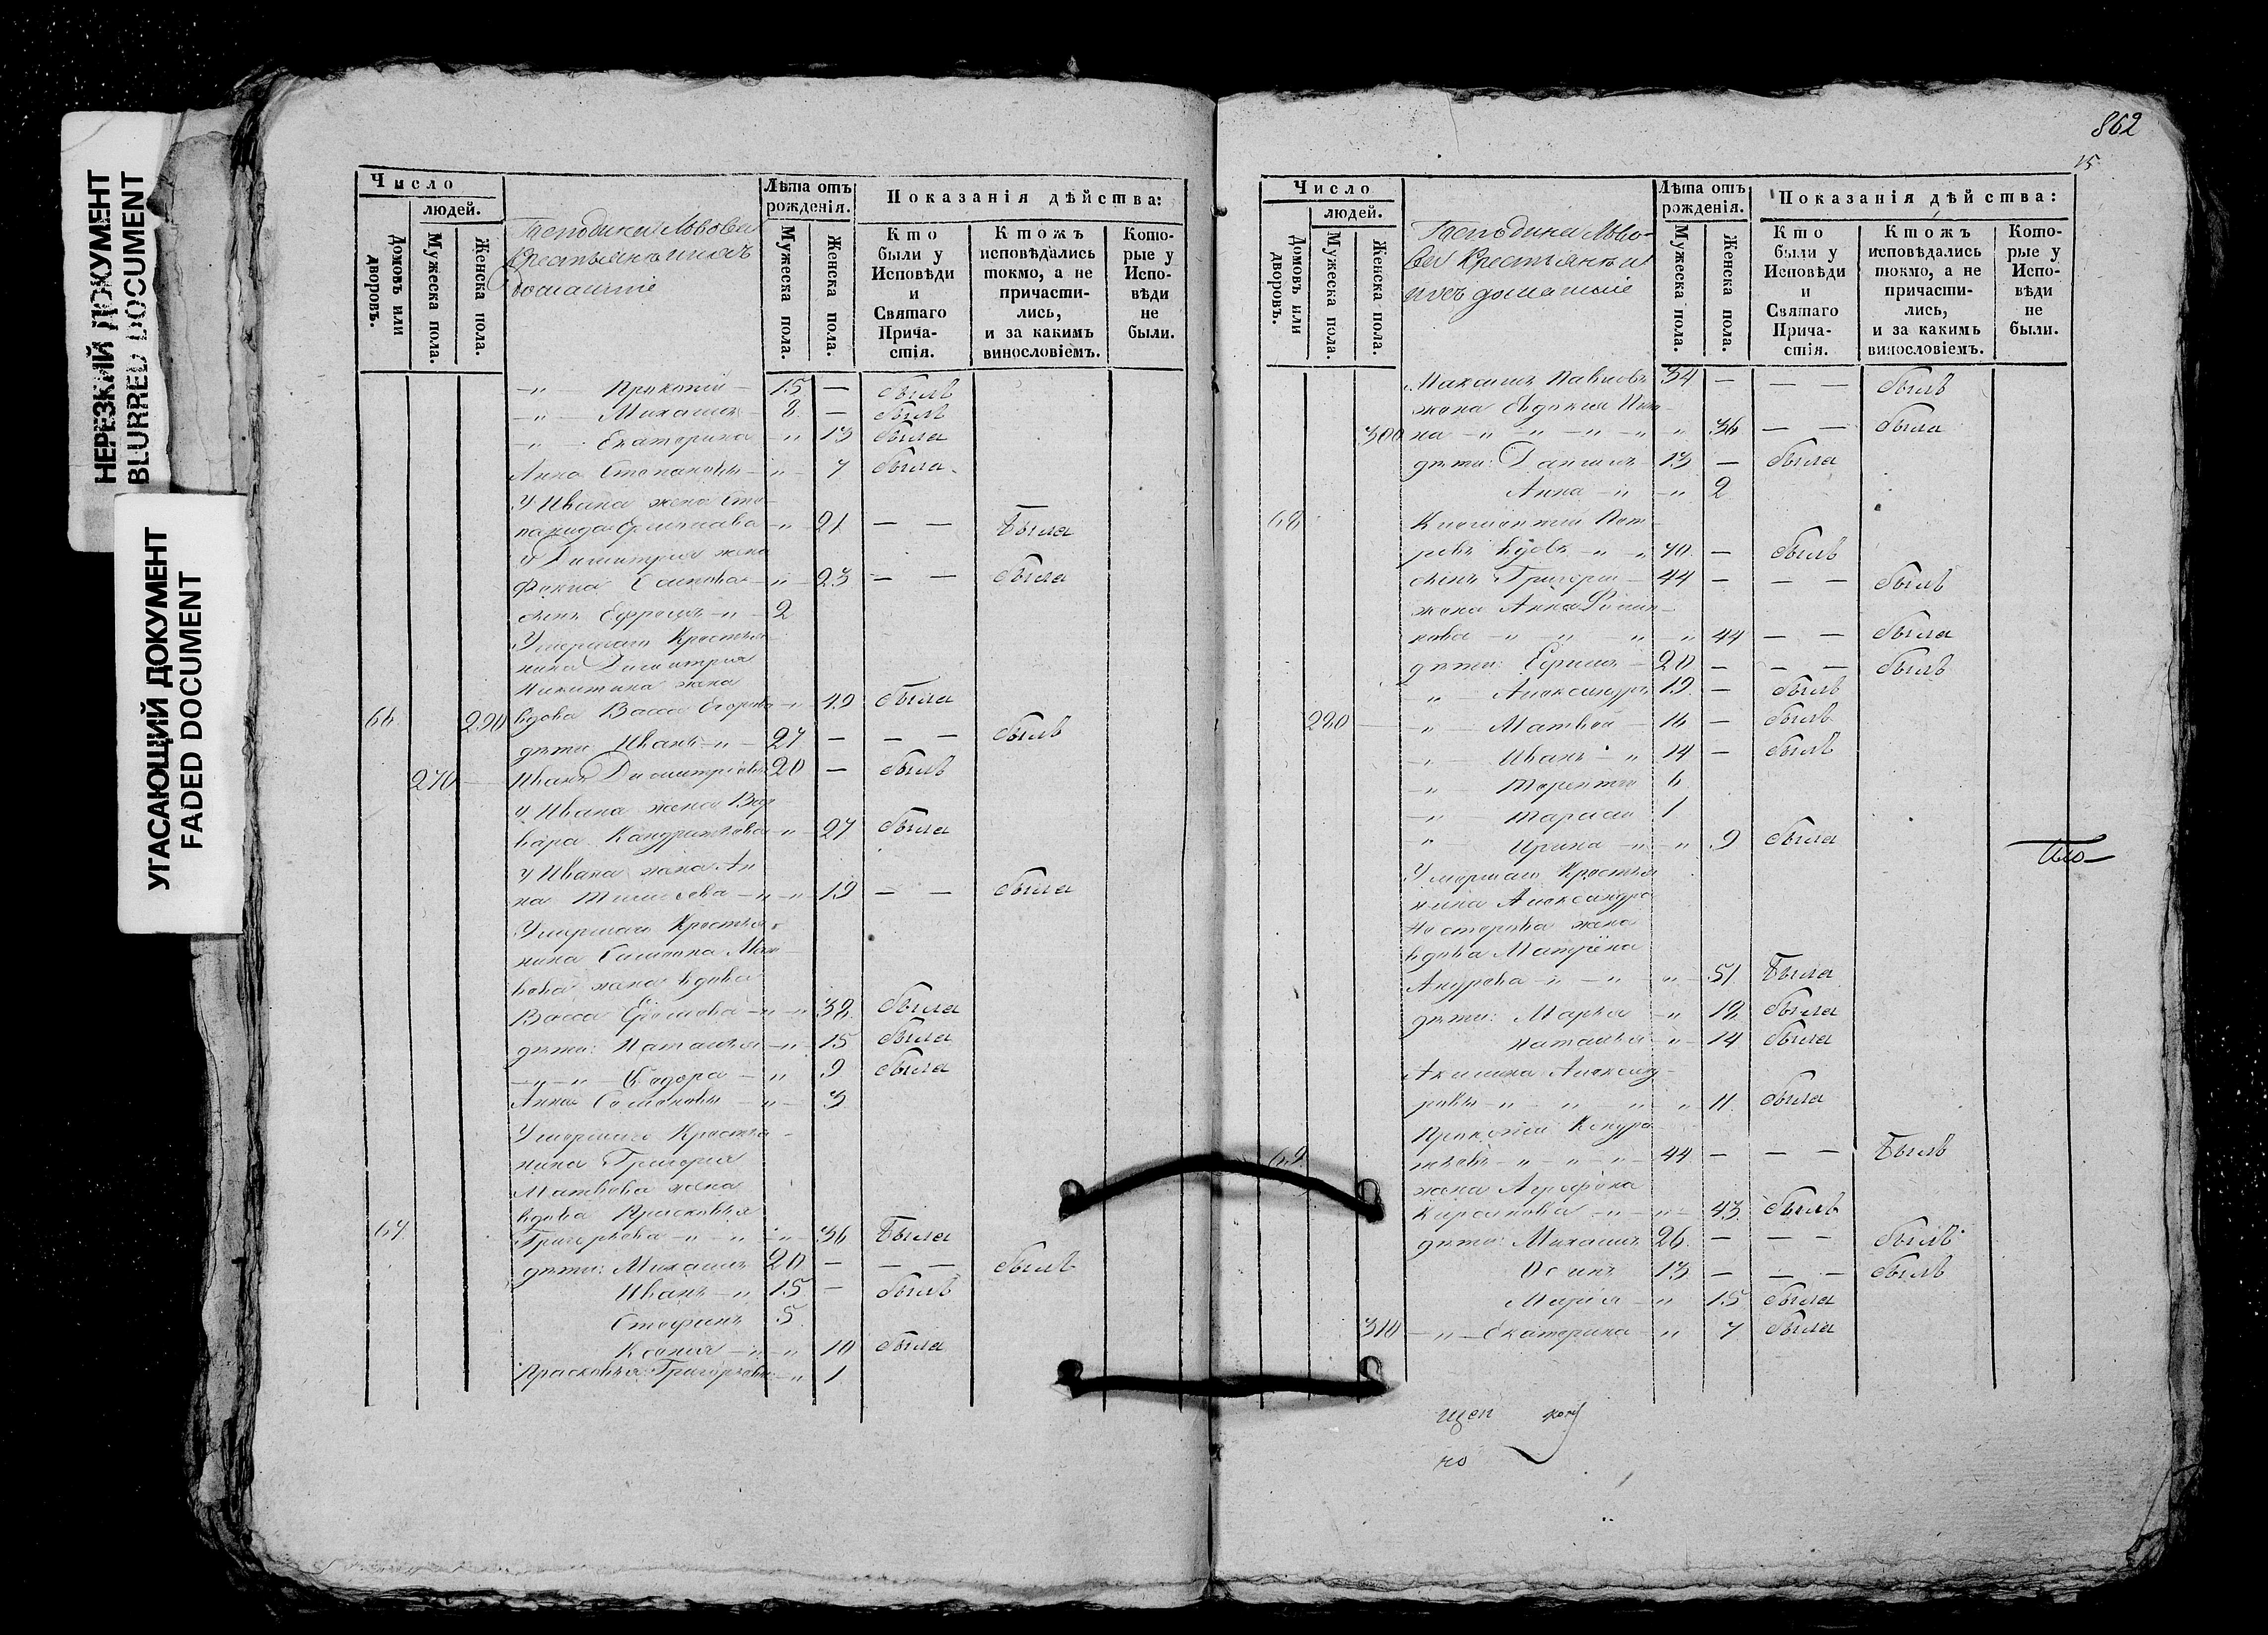 НЕРЕЗКИЙ ДОКУМЕНТ
BLURRED DOCUMENT
УГАСАЮЩИЙ ДОКУМЕНТ
FADED DOCUMENT
Число
людей.
Домовъ или дворовъ.
Мужеска пола.
Женска пола.
Господина Львова
Крестьяне и ихъ
домашніе
Лѣта отъ рожденія.
Мужеска пола.
Женска пола.
Показанія дѣйства:
Кто были у Исповѣди и Святаго Прича-стія.
Ктожъ исповѣдались токмо, а не причасти-лись, и за какимъ винословіемъ.
Кото-рые у Испо-вѣди не были.
—„ Прокопій — 15 — былъ
—„ Михаилъ 8 — былъ
—„ Екатерина —„ 13 была
Анна Степановы —„ 7 была
У Ивана жена Сте-
панида —„ 21 — — Была
У Димитрія жена
Фекла —„ 23 — — была
сынъ Ефремъ —„ 2
Умершаго Крестья-
нина Димитрія
Никитина жена
66 290 вдова Васса Егорова —„ 49 была
дѣти Иванъ —„ 27 — — — былъ
270 Иванъ Димитріевы 20 — былъ
У Ивана жена Вар-
вара Кандратьева —„ 27 была
У Ивана жена Ан
на —„ 19 — — была
Умершаго Крестья-
нина
жена вдова
Васса —„ 38 была
дѣти: Наталья —„ 15 была
—„ —„ Ѳедора —„ 9 была
Анна —„ 3
Умершаго Крестья-
нина Григорія
Матвѣева жена
вдова Прасковья
67 Григорьева —„ —„ —„ 36 Была
дѣти: Михаилъ 20 — — — былъ
Иванъ —„ 15 — былъ
Стефанъ 5
Ксенія —„ —„ 10 была
Прасковья Григорьевы —„ 1
862
15
Число
людей.
Домовъ или дворовъ.
Мужеска пола.
Женска пола.
Господина Льво-
ва Крестьяне и
ихъ домашніе
Лѣта отъ рожденія.
Мужеска пола.
Женска пола.
Показанія дѣйства:
Кто были у Исповѣди и Святаго Прича-стія.
Ктожъ исповѣдались токмо, а не причасти-лись, и за какимъ винословіемъ.
Кото-рые у Испо-вѣди не были.
Максимъ Павловъ 34 — — — былъ
жена Евдокія
300 на —„ —„ —„ —„ „ 36 — — была
дѣти: Даніилъ 13 — была
Анна —„ —„ 2
68 Климентій Пет-
ровъ вдовъ —„ 70 — былъ
сынъ Григорій — 44 — — — былъ
жена Анна
—„ „ „ —„ 44 — — была
дѣти: Ефимъ — 20 — — — былъ
„ Александръ 19 — былъ
280 —„ Матвей — 16 — былъ
—„ Иванъ —„ 14 — былъ
—„ Терентій 6
—„ Тарасій 1
„ Ирина —„ —„ 9 была
Умершаго Крестья
нина Александра
Нестерова жена
вдова Матрена
Андрева —„ —„ „ 51 Была
дѣти: Марья —„ 18 была
Наталья „ 14 была
Акилина Александ-
ровы —„ „ „ „ 11 была
Прокопій Кондра
69 тьевъ —„ —„ —„ 44 — — — Былъ
жена Агрефена
—„ —„ 43 былъ
дѣти: Михаилъ 26 — — — былъ
Осипъ 13 — — — былъ
Марія —„ 15 была
310 —„ — Екатерина —„ 7 была
щен
но